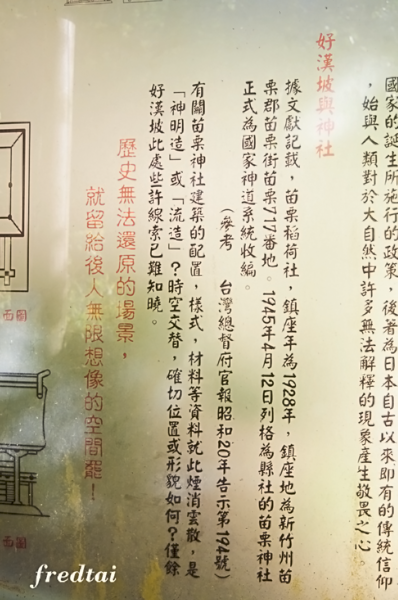 國家的誕生所施行的政策，後者為日本自古以來即有的傳統信仰
，始與人類對於大自然中許多無法解釋的現象產生敬畏之心。
好漢坡與神社
據文獻記載，苗栗稻荷社，鎮座年為1928年，鎮座地為新竹州苗
栗郡苗栗街苗栗717番地。1945年4月12日列格為縣社的苗栗神社
正式為國家神道系統收編。
（參考 台灣總督府官報昭和20年告示第194號）
有關苗栗神社建築的配置，樣式，材料等資料就此煙消雲散，是
「神明造」或「流造」？時空交替，確切位置或形貌如何？僅餘
好漢坡此處些許線索已難知曉。
歷史無法還原的場景，
就留給後人無限想像的空間罷！
西圖
西圖
fredtai